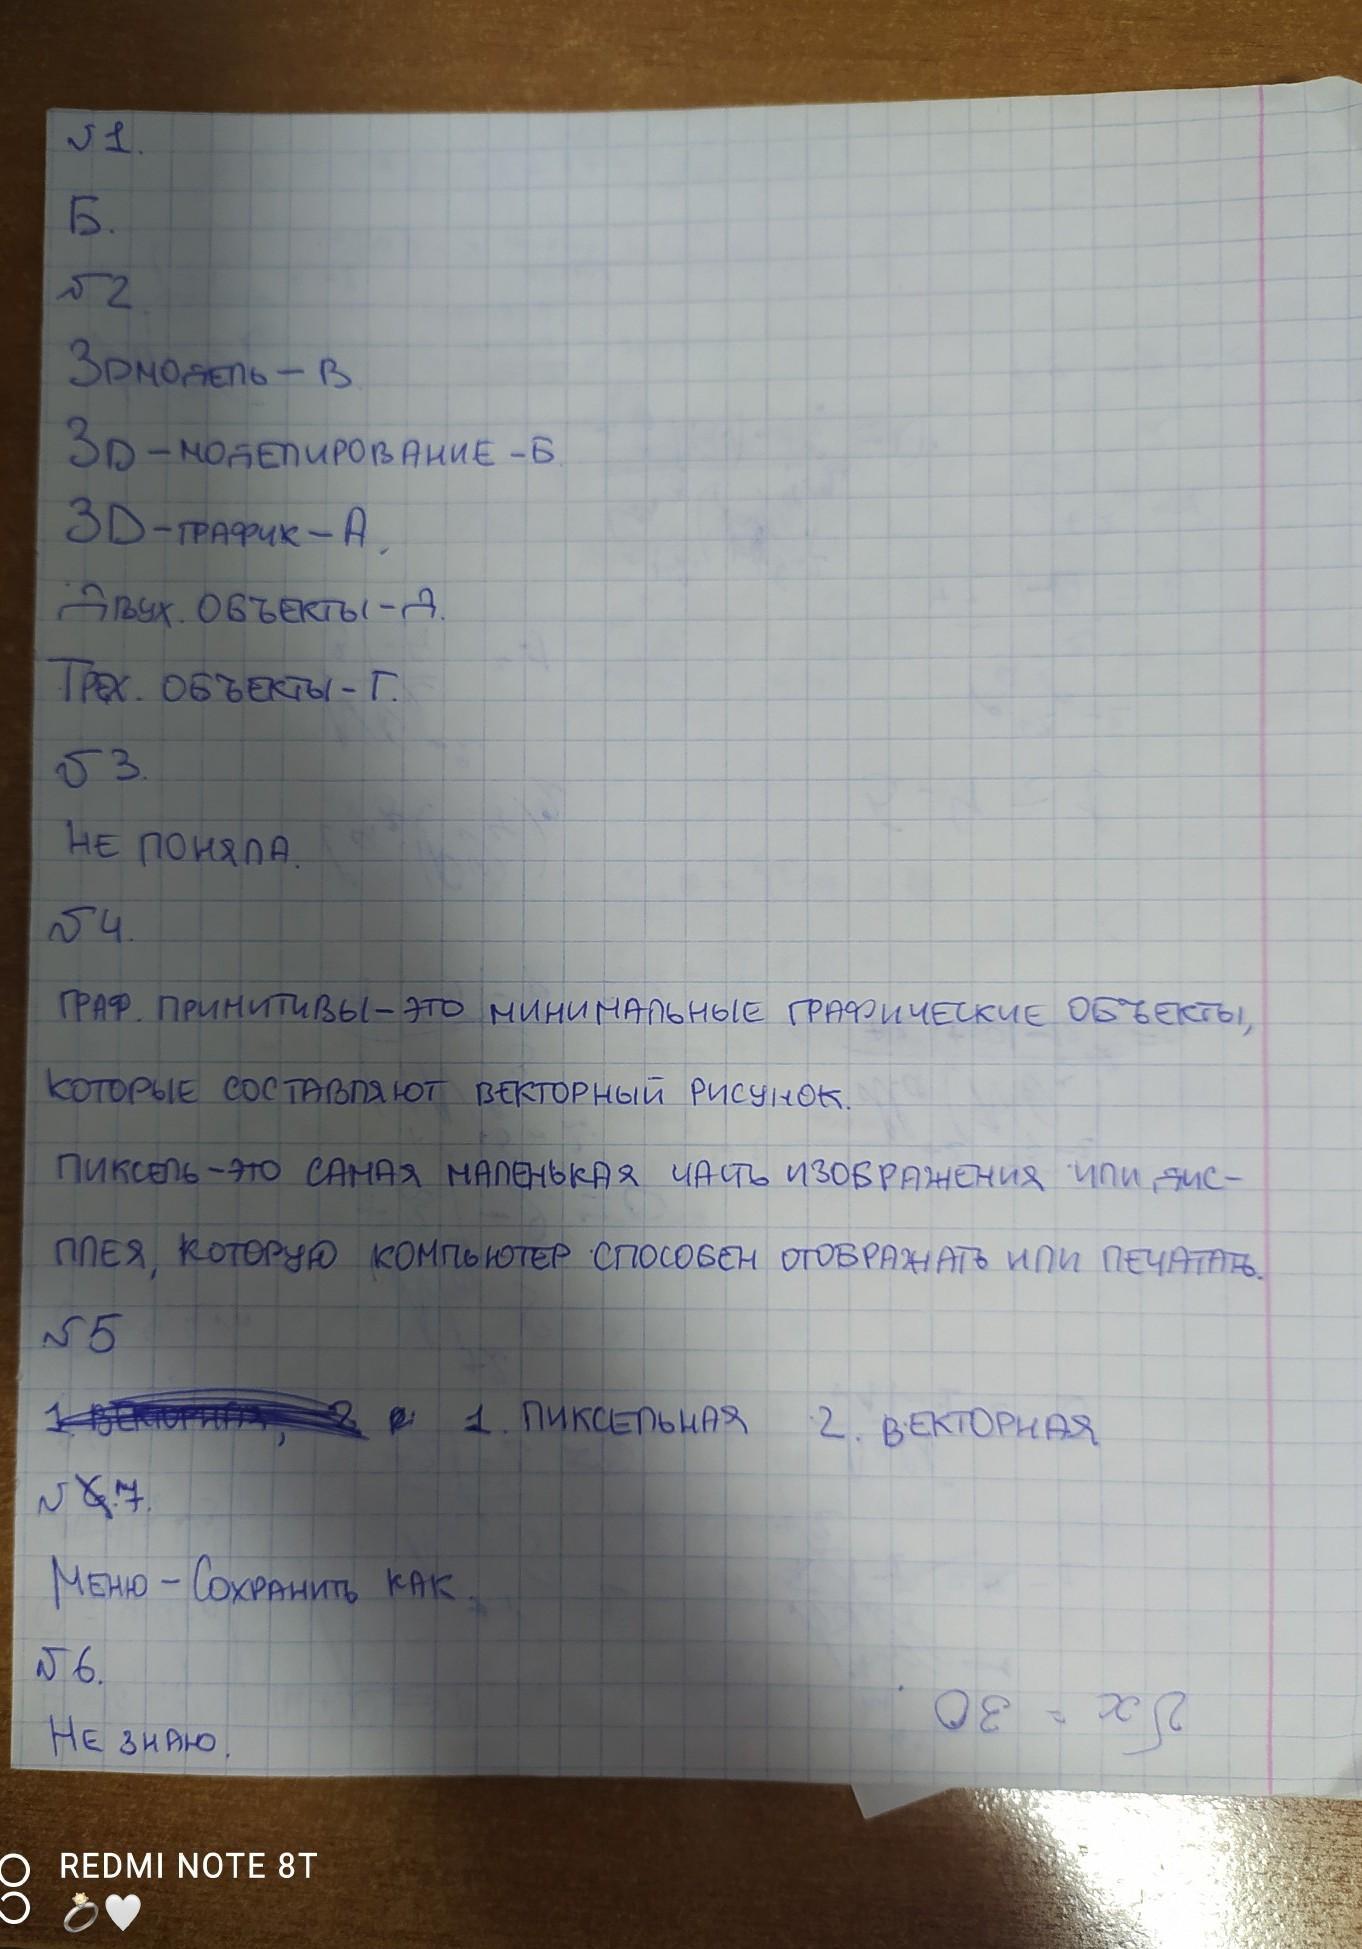 №1.
Б.
№2
3Dмодель – В
3D – моделирование – Б
3D – график – А.
Двух. объекты – Д.
Трех. объекты – Г.
№3.
Не поняла.
№4.
Граф. примитивы – это минимальные графические объекты,
которые составляют векторный рисунок.
Пиксель – это самая маленькая часть изображения или дис-
плея, которую компьютер способен отображать или печатать.
№5
1. Пиксельная 2. Векторная
№7.
Меню – Сохранить как.
№6.
Не знаю.
REDMI NOTE 8T